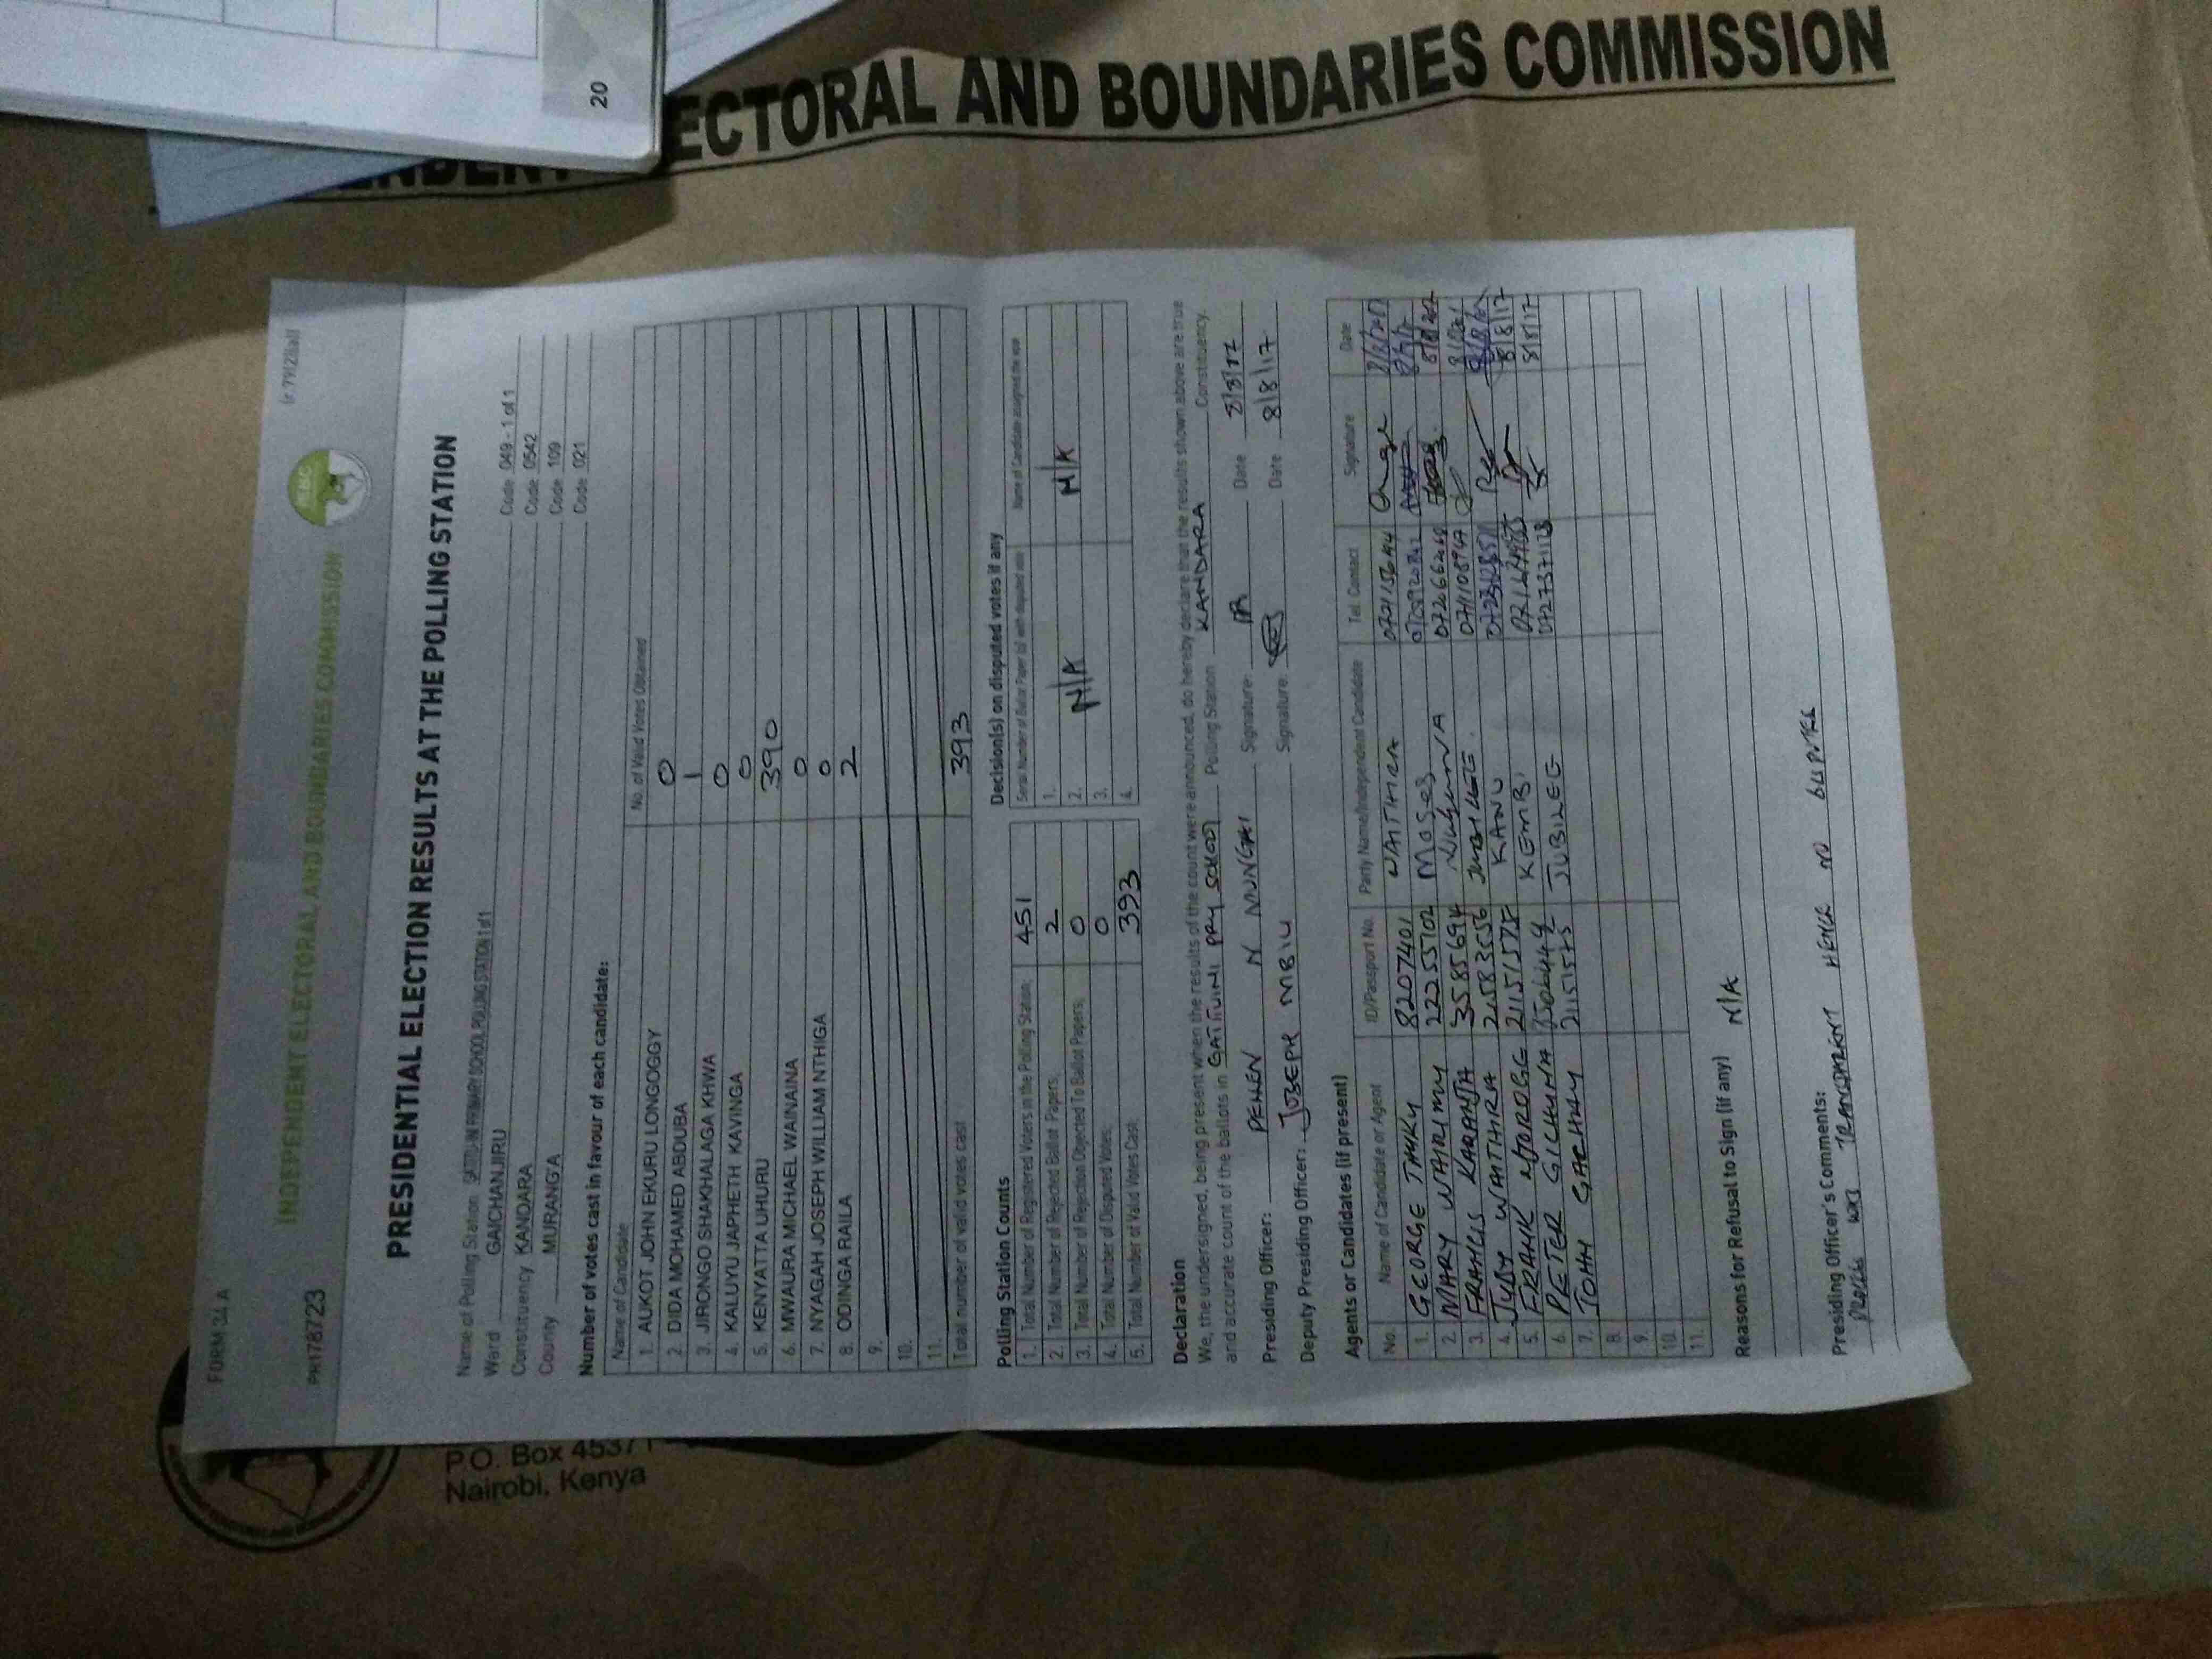 20
ECTORAL AND BOUNDARIES COMMISSION
FORM 34 A
INDEPENDENT ELECTORAL AND BOUNDARIES COMMISSION
IEBC
PR178723
PRESIDENTIAL ELECTION RESULTS AT THE POLLING STATION
Name of Polling Station GAITUINI PRIMARY SCHOOL POLLING STATION 1 of 1 Code 049 - 1 of 1
Ward GAICHANJIRU Code 0542
Constituency KANDARA Code 109
County MURANG'A Code 021
Number of votes cast in favour of each candidate:
Name of Candidate No. of Valid Votes Obtained
1. AUKOT JOHN EKURU LONGOGGY 0
2. DIDA MOHAMED ABDUBA 1
3. JIRONGO SHAKHALAGA KHWA 0
4. KALUYU JAPHETH KAVINGA 0
5. KENYATTA UHURU 390
6. MWAURA MICHAEL WAINAINA 0
7. NYAGAH JOSEPH WILLIAM NTHIGA 0
8. ODINGA RAILA 2
9.
10.
11.
Total number of valid votes cast 393
Polling Station Counts
1. Total Number of Registered Voters in the Polling Station; 451
2. Total Number of Rejected Ballot Papers; 2
3. Total Number of Rejection Objected To Ballot Papers; 0
4. Total Number of Disputed Votes; 0
5. Total Number of Valid Votes Cast; 393
Decision(s) on disputed votes if any
Serial Number of Ballot Paper (s) with disputed vote Name of Candidate assigned the vote
1.
2. N/A N/A
3.
4.
Declaration
We, the undersigned, being present when the results of the count were announced, do hereby declare that the results shown above are true
and accurate count of the ballots in GAITUINI PRY SCHOOL Polling Station KANDARA Constituency.
Presiding Officer: N Signature: Date 8/8/17
Deputy Presiding Officer: JOSEPH MBIU Signature: Date 8/8/17
Agents or Candidates (if present)
No. Name of Candidate or Agent ID/Passport No. Party Name/Independent Candidate Tel. Contact Signature Date
1. GEORGE 8207401 WAITHIRA
2. MARY WAIRIMU 22255702 Moses
3. FRANCIS KARANJA 35856944 0726662468
4. JUDY WAITHIRA JUBILEE 0711108967
5. FRANK NJOROGE 21151575 KANU 8/8/17
6. PETER GICHUHA 8/8/17
7. JOHN GACHAU 21151575 JUBILEE 0727371118 8/8/17
8.
9.
10.
11.
Reasons for Refusal to Sign (if any) N/A
Presiding Officer's Comments: TRANSPARENT HENCE NO DISPUTES
P.O. Box 45371
Nairobi, Kenya